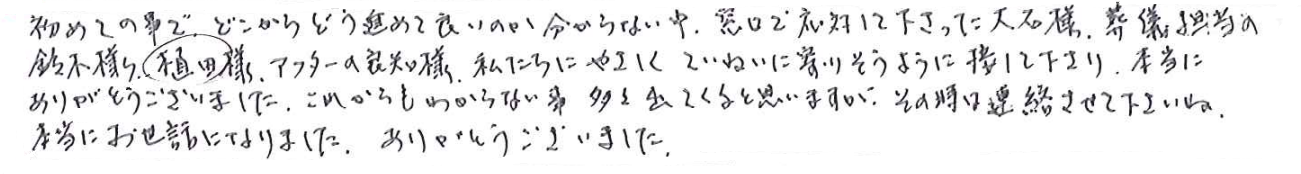 初めての事で、どこからどう進めて良いのか分からない中、窓口で応対して下さった大石様、葬儀担当の
鈴木様、植田様、アフターの良知様、私たちにやさしくていねいに寄りそうように接して下さり、本当に
ありがとうございました。これからもわからない事多々出てくると思いますが、その時は連絡させて下さいね。
本当にお世話になりました。ありがとうございました。